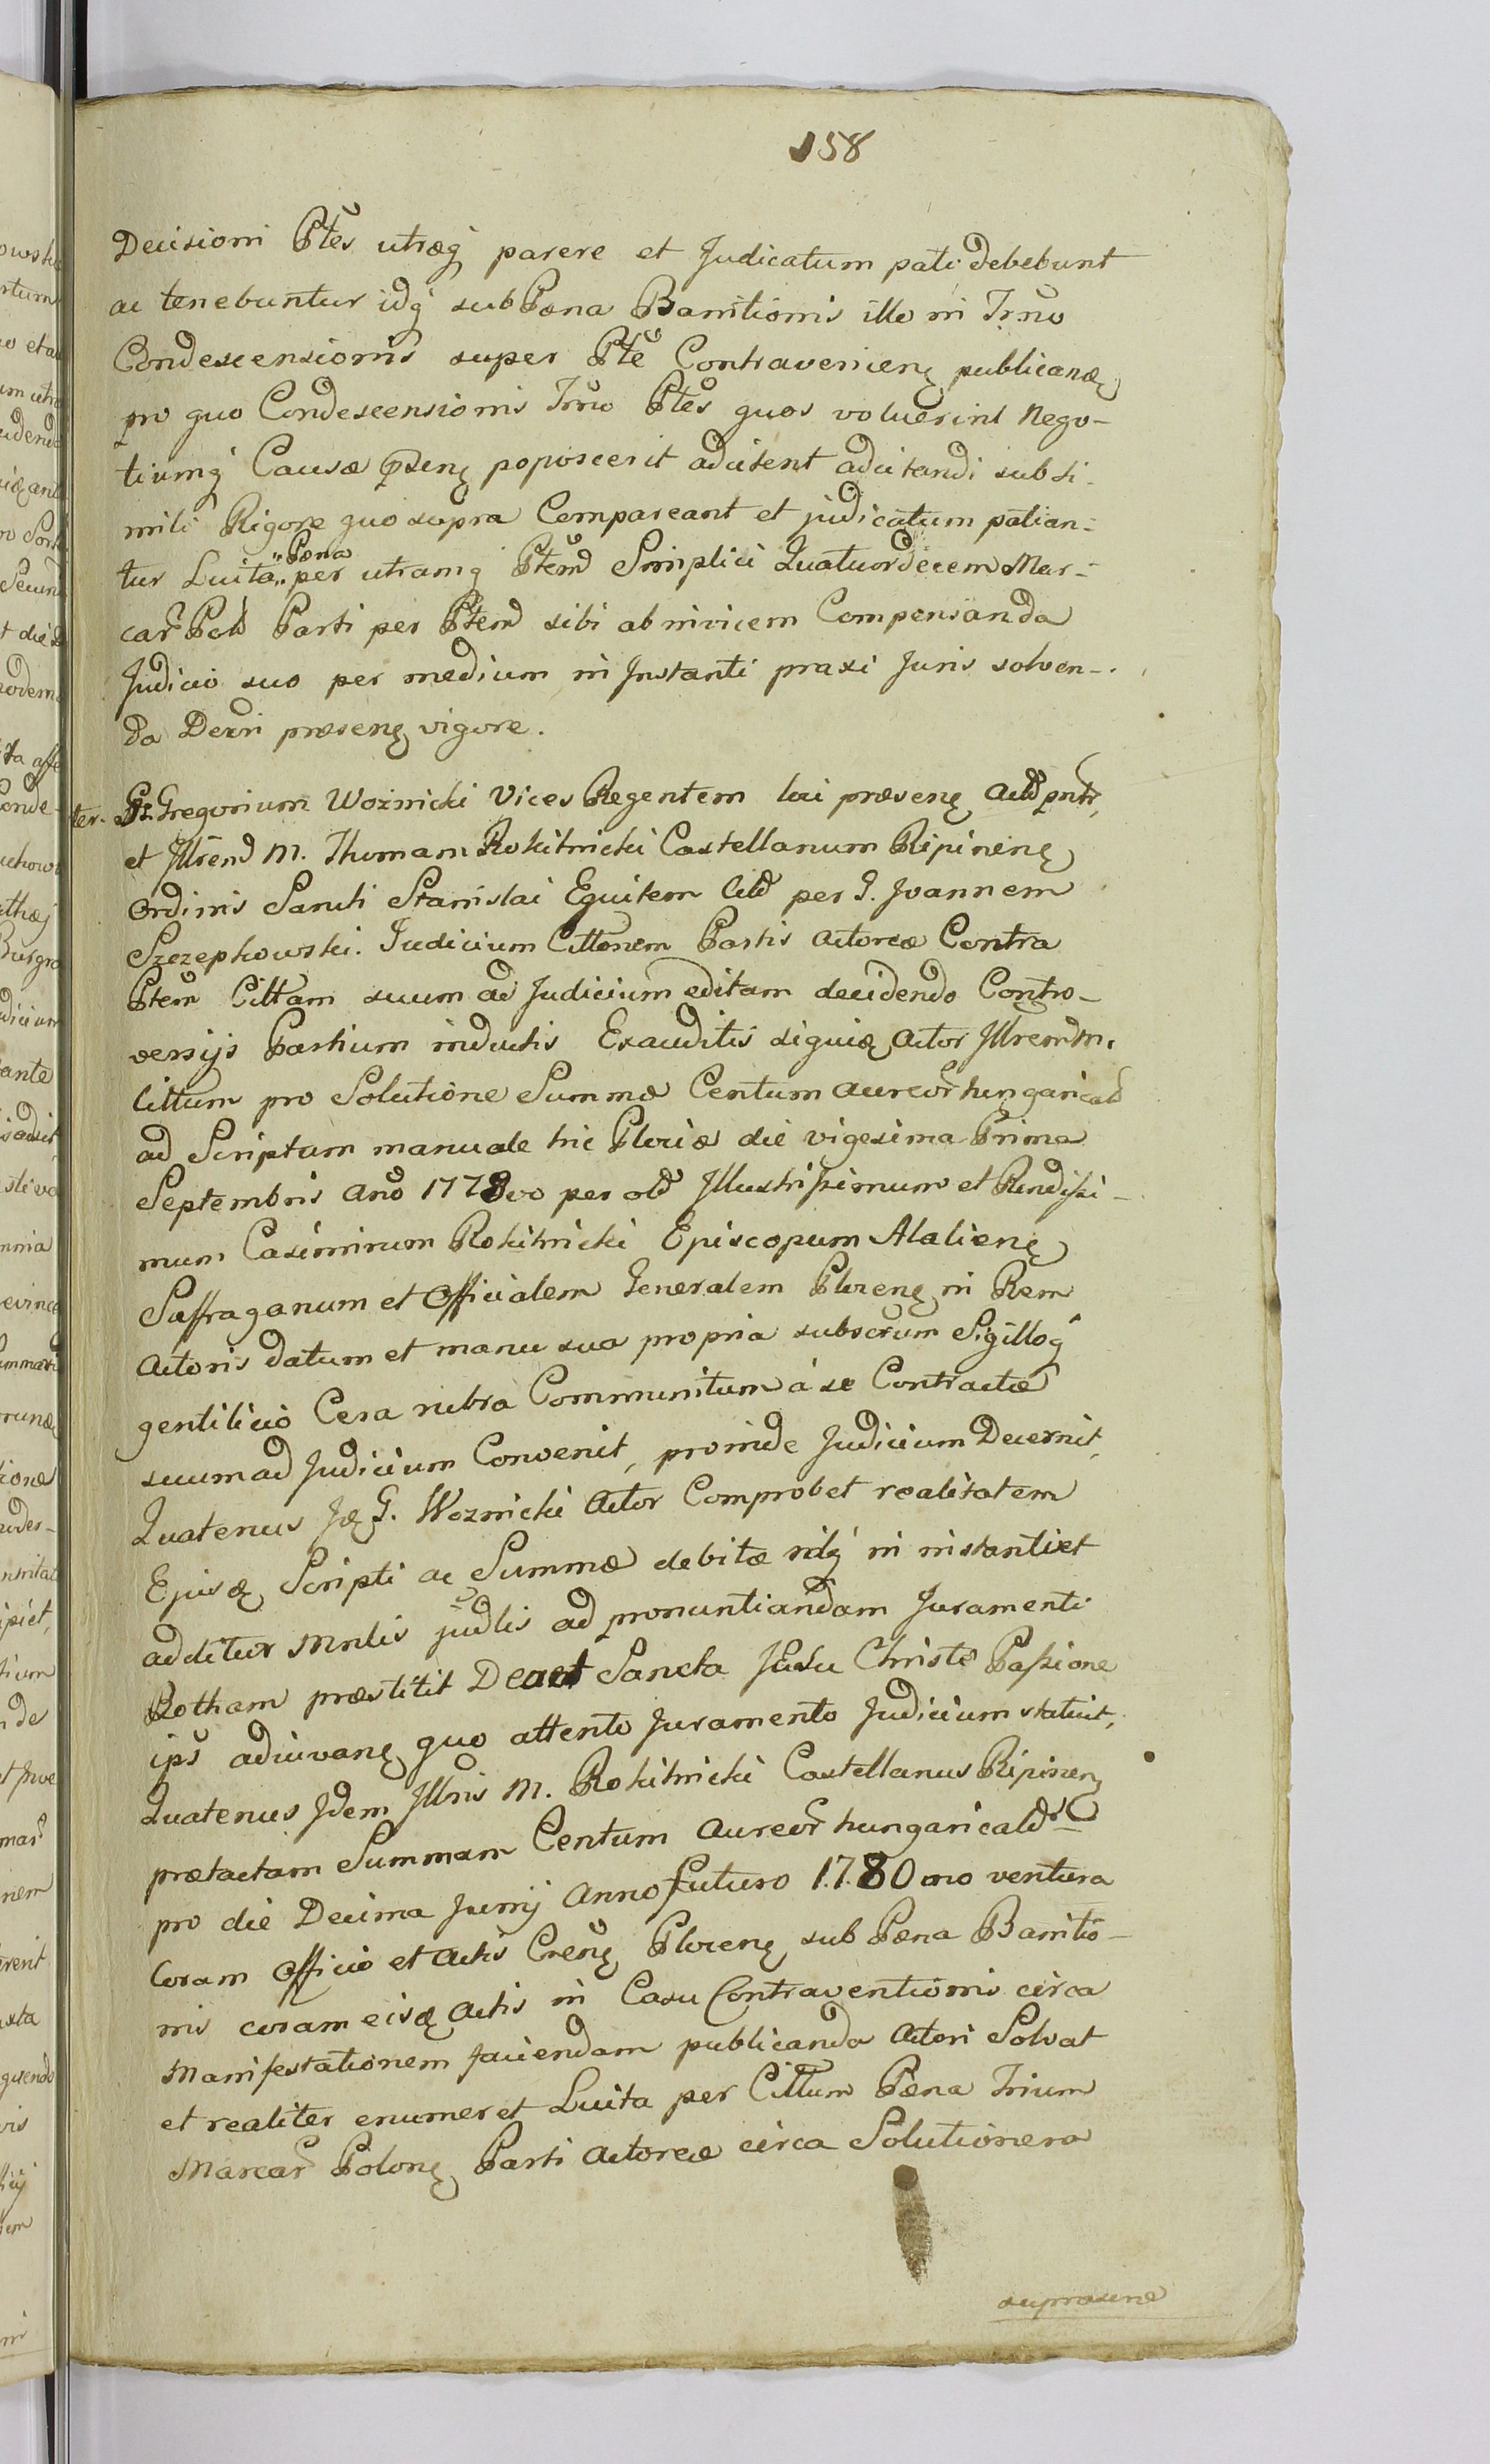 158
Decisioni Ptes utræq parere et Judicatum pati debebunt
ac tenebuntur idq sub Pæna Banitionis illo in Trno
Condescensionis super Pte Contravenienę publicandæ
pro quo Condescensionis Trno Ptes quos voluerint Nego-
tiumq Causæ pręsenę poposcerit adcitent adcitandi sub si-
mili Rigore quo supra Compareant et judicatum patian-
tur Luita „Pæna„ per utramq Ptem Simplici Quatuordecem Mar-
car Pol Parti per Ptem sibi ab invicem Compensanda
Judicio suo per medium in Instanti praxi Juris solven-
da Decri præsenę vigore.
ter. Gr. Gregorium Woźnicki Vices Regentem loci præsenę Act
et Illrem M. Thomam Rokitnicki Castellanum Ripinenę
Ordinis Sancti Stanislai Equitem Citt per G. Joannem
Szczepkowski. Judicium Cittonem Partis Actoreæ Contra
Ptem Cittam suum ad Judicium editam decidendo Contro-
versijs Partium inductis Exauditis siquię Actor Illrem M.
Cittum pro Solutione Summæ Centum Aureor hungarical
ad Scriptum manuale hic Plociæ die vigesima Prima
Septembris Ano 1778vo per olim Illustrissimum et Rendissi-
mum Casimirum Rokitnicki Episcopum Alalienę
Suffraganum et Officialem Generalem Plocenę in Rem
Actoris datum et manu sua propria subscrum Sigilloq
gentilicio Cera rubra Communitum á se Contractæ
suum ad Judicium Convenit, proinde Judicium Decernit,
Quatenus Ję G. Woznicki Actor Comprobet realitatem
Ejusdę Scripti ac Summæ debitæ idq in instanti et
additur Mnlis judlis ad pronuntiandam Juramenti
Rotham præstitit Deo et Sancta Jesu Christi Passione
ips adiuvanę quo attento Juramento Judicium statuit,
Quatenus Idem Illris M. Rokitnicki Castellanus Ripinenę
prætactam Summam Centum Aureor hungarical
pro die Decima Junij Anno futuro 1780mo ventura
Coram Officio et Actis Crenę Plocenę sub Pæna Banitio-
nis coram eisdę Actis in Casu Contraventionis circa
Manifestationem faciendam publicanda Actori Solvat
et realiter enumeret Luita per Cittum Pæna Trium
Marcar Polonę Parti Actoreæ circa Solutionem